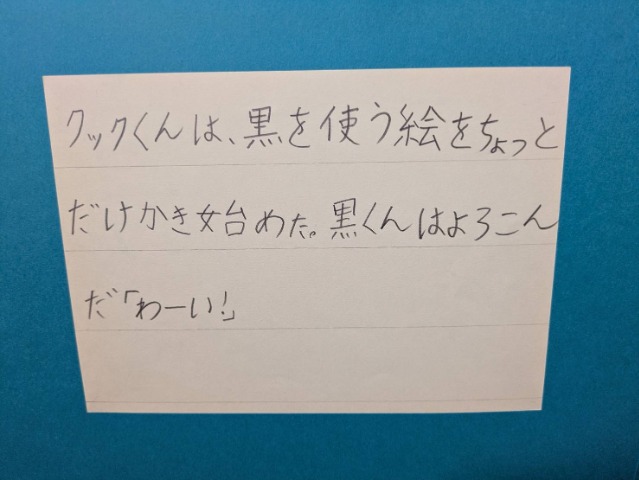 クックくんは、黒を使う絵をちょっと
だけかき始めた。黒くんはよろこん
だ「わーい!」